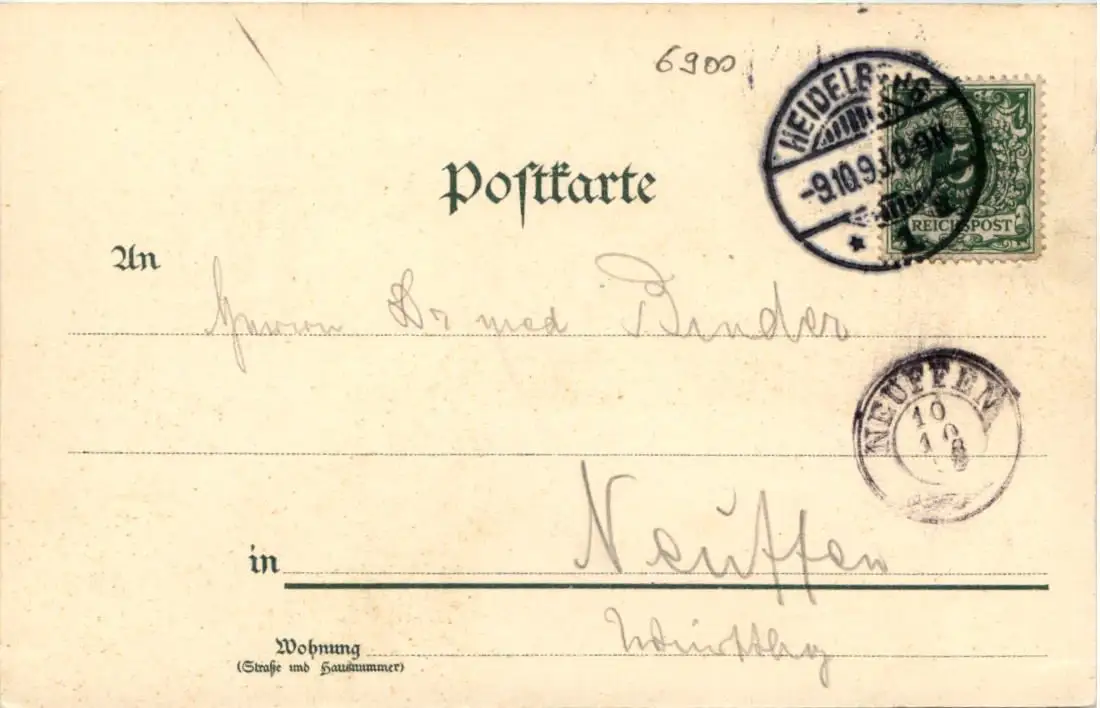 6900
HEIDELBERG
-9.10.9 8-9N
* 1
5
REICHSPOST
Postkarte
An
Herrn Dr med Binder
NEUFFEN
10
10
in Neuffen
Wohnung
(Straße und Hausnummer)